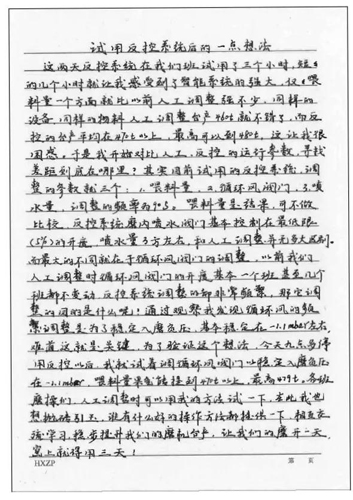 试用反控系统后的一点想法
这两天反控系统在我们班试用了三个小时,短短
的几个小时就让我感受到了智能系统的强大,仅喂
料量一个方面就比以前人工调整强不少,同样的
设备,同样的物料人工调整台产460t就不错了,而反
控的台产平均在470t以上,最高可以到480t,这让我很
困惑。于是我开始对比人工,反控的运行参数,寻找
差距到底在哪里?其实目前试用的反控系统,调
整的参数就三个:1.喂料量,2.循环风阀门,3.喷
水量,调整的频率为90S。喂料量是结果,可不做
比较,反控系统磨内喷水阀门基本控制在最低限
(5%)的开度,喷水量3方左右,和人工调整并无多大区别。
而最大的不同就在于循环风阀门的调整,以前我们
人工调整时循环风阀门的开度基本一个班甚至几个
班都不变动,反控系统调整的却非常频繁,那它调
整的目的是什么呢!通过观察我发现循环风的频
繁调整是为了稳定入磨负压,基本稳定在-1.1mbar左右,
难道这就是关键,为了验证这个想法,今天九点多停
用反控以后,我就试着调循环风阀门以稳定入磨负压
在-1.1mbar 喂料量果然能提到470t以上,最高479t。各班
磨操们,人工调整时可以用我的方法试一下,在此我也
想抛砖引玉,谁有什么好的操作方法都提供一下,相互交
流学习,稳步提升我们的磨机台产,让我们的磨开一天,
窑上就得用三天!
HXZP 第 页